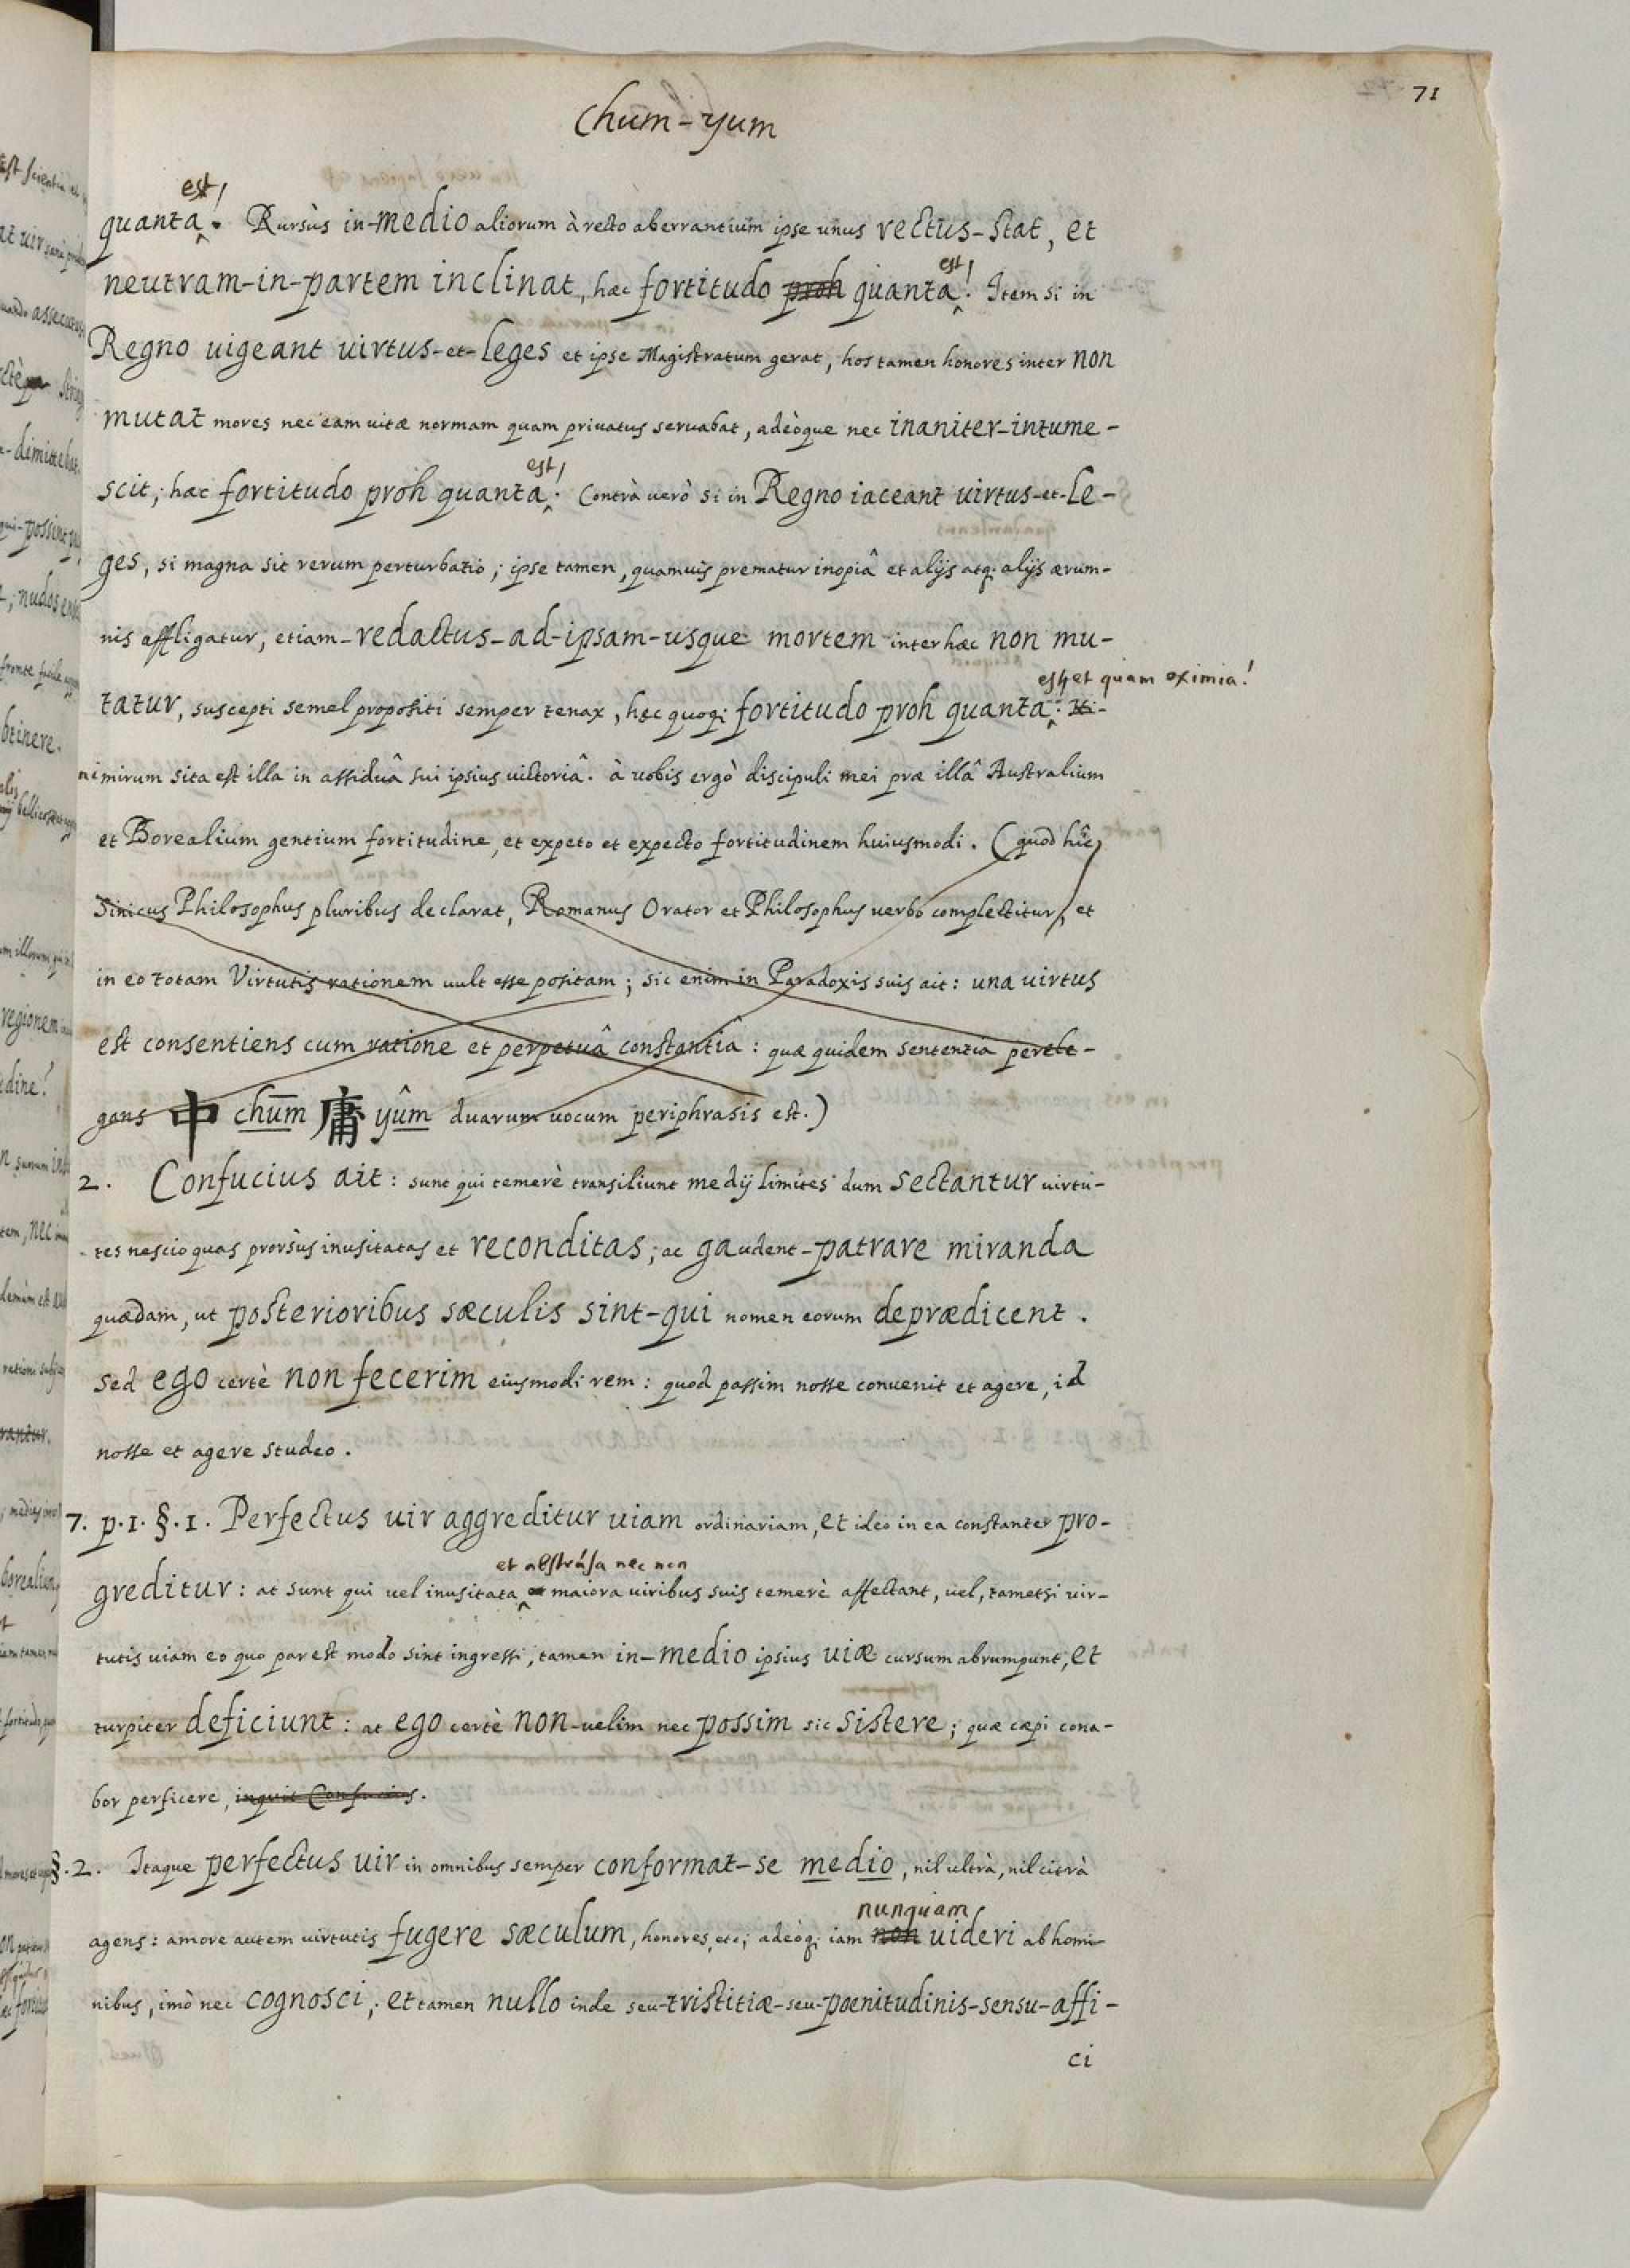 71
Chūm-yum
est!
quanta. Rursùs in-medio aliorum à recto aberrantium ipse unus rectus-stat, et
est!
neutram-in-partem inclinat, hæc fortitudo proh quanta. Item si in
Regno uigeant uirtus-et-leges et ipse Magistratum gerat, hos tamen honores inter non
mutat mores nec eam uitæ normam quam priuatus seruabat, adeòque nec inaniter-intume-
est!
scit; hæc fortitudo proh quanta. Contrà uerò si in Regno iaceant uirtus-et-le-
ges, si magna sit rerum perturbatio; ipse tamen, quamuis prematur inopiâ et alijs atq; alijs ærum-
nis affligatur, etiam-redactus-ad-ipsam-usque mortem inter hæc non mu-
est, et quam eximia!
tatur, suscepti semel propositi semper tenax, hęc quoq; fortitudo proh quanta:
nimirum sita est illa in assiduâ sui ipsius uictoriâ. à uobis ergò discipuli mei præ illâ Australium
et Borealium gentium fortitudine, et expeto et expecto fortitudinem huiusmodi. (quod hîc
Sinicus Philosophus pluribus declarat, Romanus Orator et Philosophus uerbo complectitur, et
in eo totam Virtutis rationem uult esse positam; sic enim in Paradoxis suis ait: una uirtus
est consentiens cum ratione et perpetuâ constantiâ: quæ quidem sententia perele-
gans 中 chūm 庸 yûm duarum uocum periphrasis est.)
2. Confucius ait: sunt qui temerè transiliunt medij limites dum sectantur uirtu-
tes nescio quas prorsùs inusitatas et reconditas; ac gaudent-patrare miranda
quædam, ut posterioribus sæculis sint-qui nomen eorum deprædicent.
Sed ego certè non fecerim eiusmodi rem: quod passim nosse conuenit et agere, id
nosse et agere studeo.
7. p.1. §.1. Perfectus uir aggreditur uiam ordinariam, et ideo in ea constanter pro-
et abstrusa nec non
greditur: at sunt qui uel inusitata maiora uiribus suis temerè affectant, uel, tametsi uir-
tutis uiam eo quo par est modo sint ingressi, tamen in-medio ipsius uiæ cursum abrumpunt, et
turpiter deficiunt: at ego certè non-uelim nec possim sic sistere; quæ cæpi cona-
bor perficere, inquit Confucius.
§.2. Itaque perfectus uir in omnibus semper conformat-se medio, nil ultrà, nil citrà
nunquam
agens: amore autem uirtutis fugere sæculum, honores, etc; adeòq; iam non uideri ab homi-
nibus, imò nec cognosci; et tamen nullo inde seu-tristitiæ-seu-pœnitudinis-sensu-affi-
ci